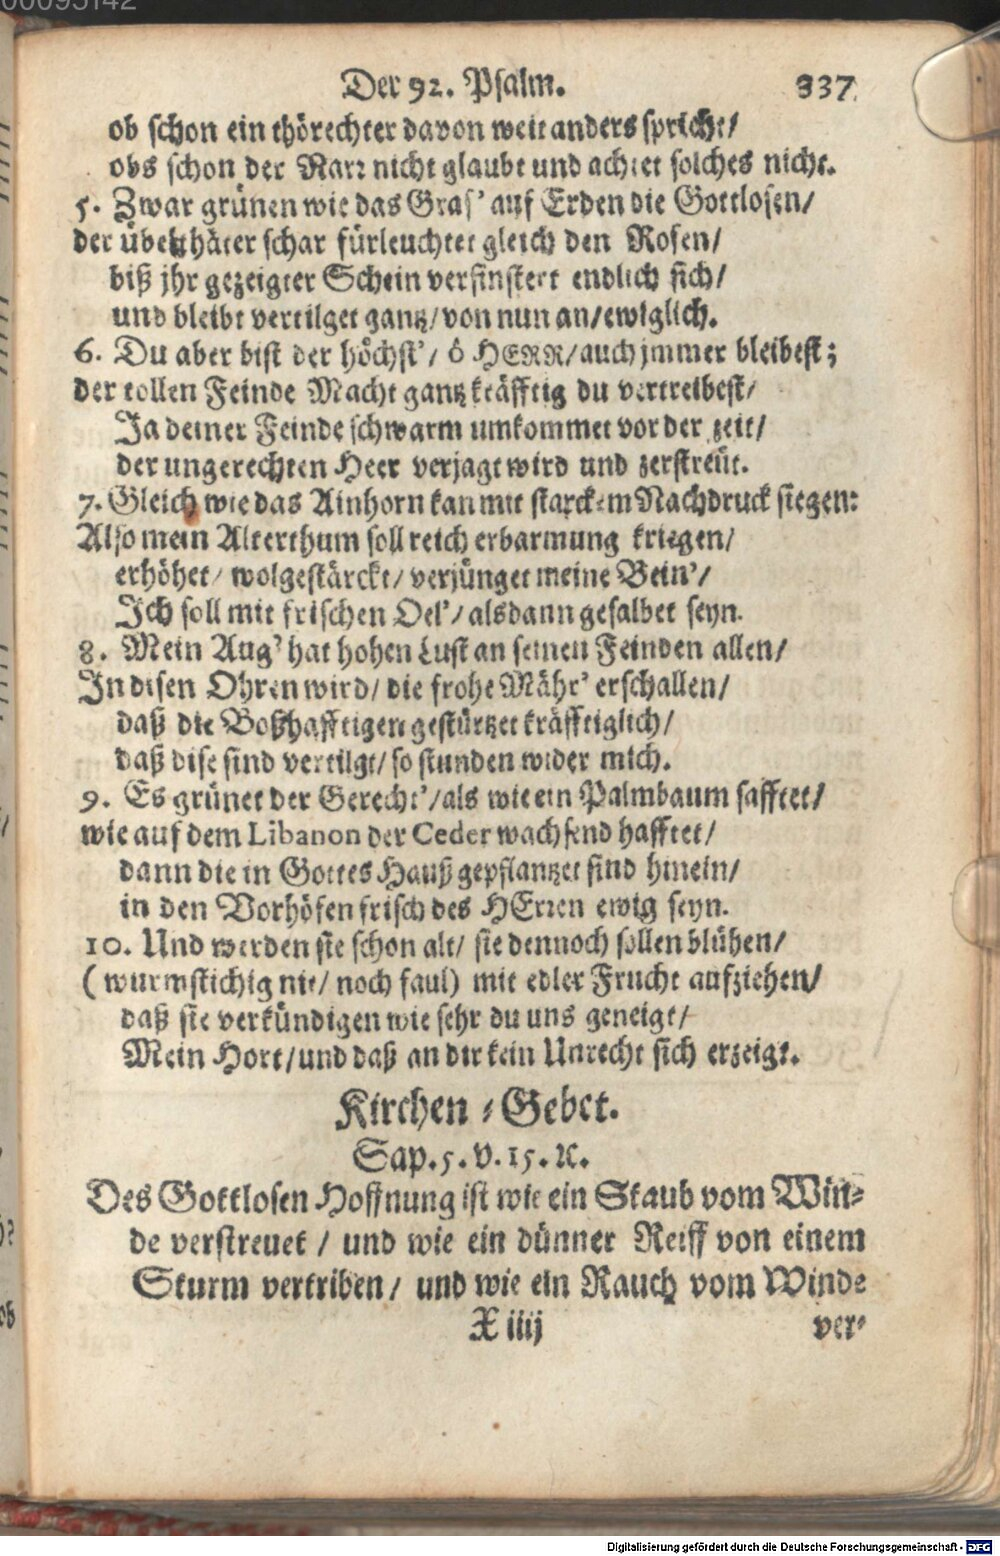 00095142
Der 92. Psalm. 337
ob schon ein thörechter davon weit anders spricht/
obs schon der Narr nicht glaubt und achtet solches nicht.
5. Zwar grünen wie das Gras’ auf Erden die Gottlosen/
der übelthäter schar fürleuchtet gleich den Rosen/
biß jhr gezeigter Schein verfinstert endlich sich/
und bleibt vertilget gantz/ von nun an/ ewiglich.
6. Du aber bist der höchst’/ ô HERR/ auch jmmer bleibest;
der tollen Feinde Macht gantz kräfftig du vertreibest/
Ja deiner Feinde schwarm umkommet vor der zeit/
der ungerechten Heer verjagt wird und zerstreüt.
7. Gleich wie das Ainhorn kan mit starckem Nachdruck siegen:
Also mein Alterthum soll reich erbarmung kriegen/
erhöhet/ wolgestärckt/ verjünget meine Bein’/
Ich soll mit frischen Oel’/ alsdann gesalbet seyn.
8. Mein Aug’ hat hohen Lust an seinen Feinden allen/
In disen Ohren wird/ die frohe Mähr’ erschallen/
daß die Boßhafftigen gestürtzet kräfftiglich/
daß dise sind vertilgt/ so stunden wider mich.
9. Es grünet der Gerecht’/ als wie ein Palmbaum safftet/
wie auf dem Libanon der Ceder wachsend hafftet/
dann die in Gottes Hauß gepflantzet sind hinein/
in den Vorhöfen frisch des HErren ewig seyn.
10. Und werden sie schon alt/ sie dennoch sollen blühen/
(wurmstichig nit/ noch faul) mit edler Frucht aufziehen/
daß sie verkündigen wie sehr du uns geneigt/
Mein Hort/ und daß an dir kein Unrecht sich erzeigt.
Kirchen-Gebet.
Sap. 5. v. 15. ꝛc.
Des Gottlosen Hoffnung ist wie ein Staub vom Win-
de verstreuet / und wie ein dünner Reiff von einem
Sturm vertriben/ und wie ein Rauch vom Winde
X iiij ver-
Digitalisierung gefördert durch die Deutsche Forschungsgemeinschaft - DFG